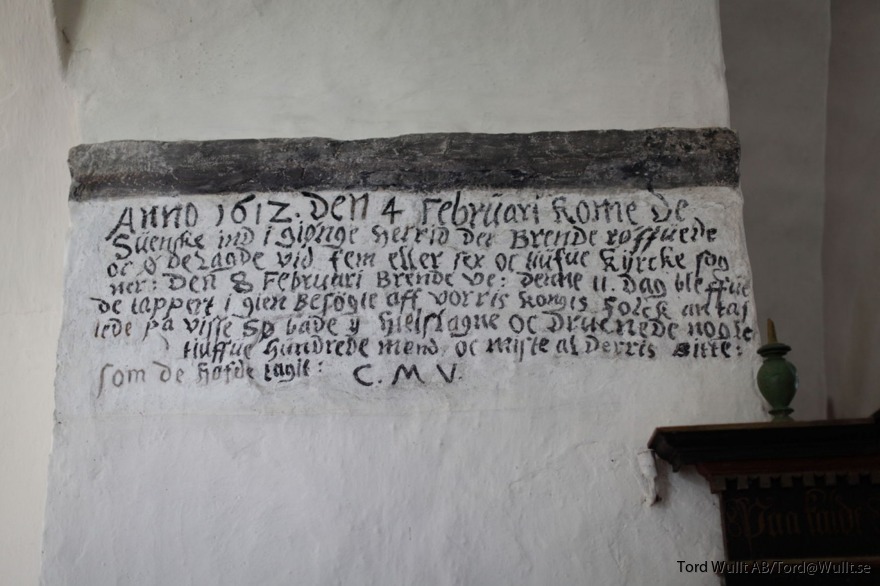 Anno 1612. den 4 Februari kome de
Suenske ind i giønge Herrid der Brende røffuede
oc ø de Lagde vid fem eller sex oc tiufue Kyrcke sog
ner: Den 8 Februari Brende Ve: denne 11. Dag bleffue
de tappert i gien Besøgte aff vorris kongis Folck antaf
lede paa visse Sø baade y hielslagne oc Druenede nogle
tiuffue Hundrede mend, oc miste al Derris bitte:
som de hafde tagit: C. M V.
Paa
Tord Wullt AB/Tord@Wullt.se